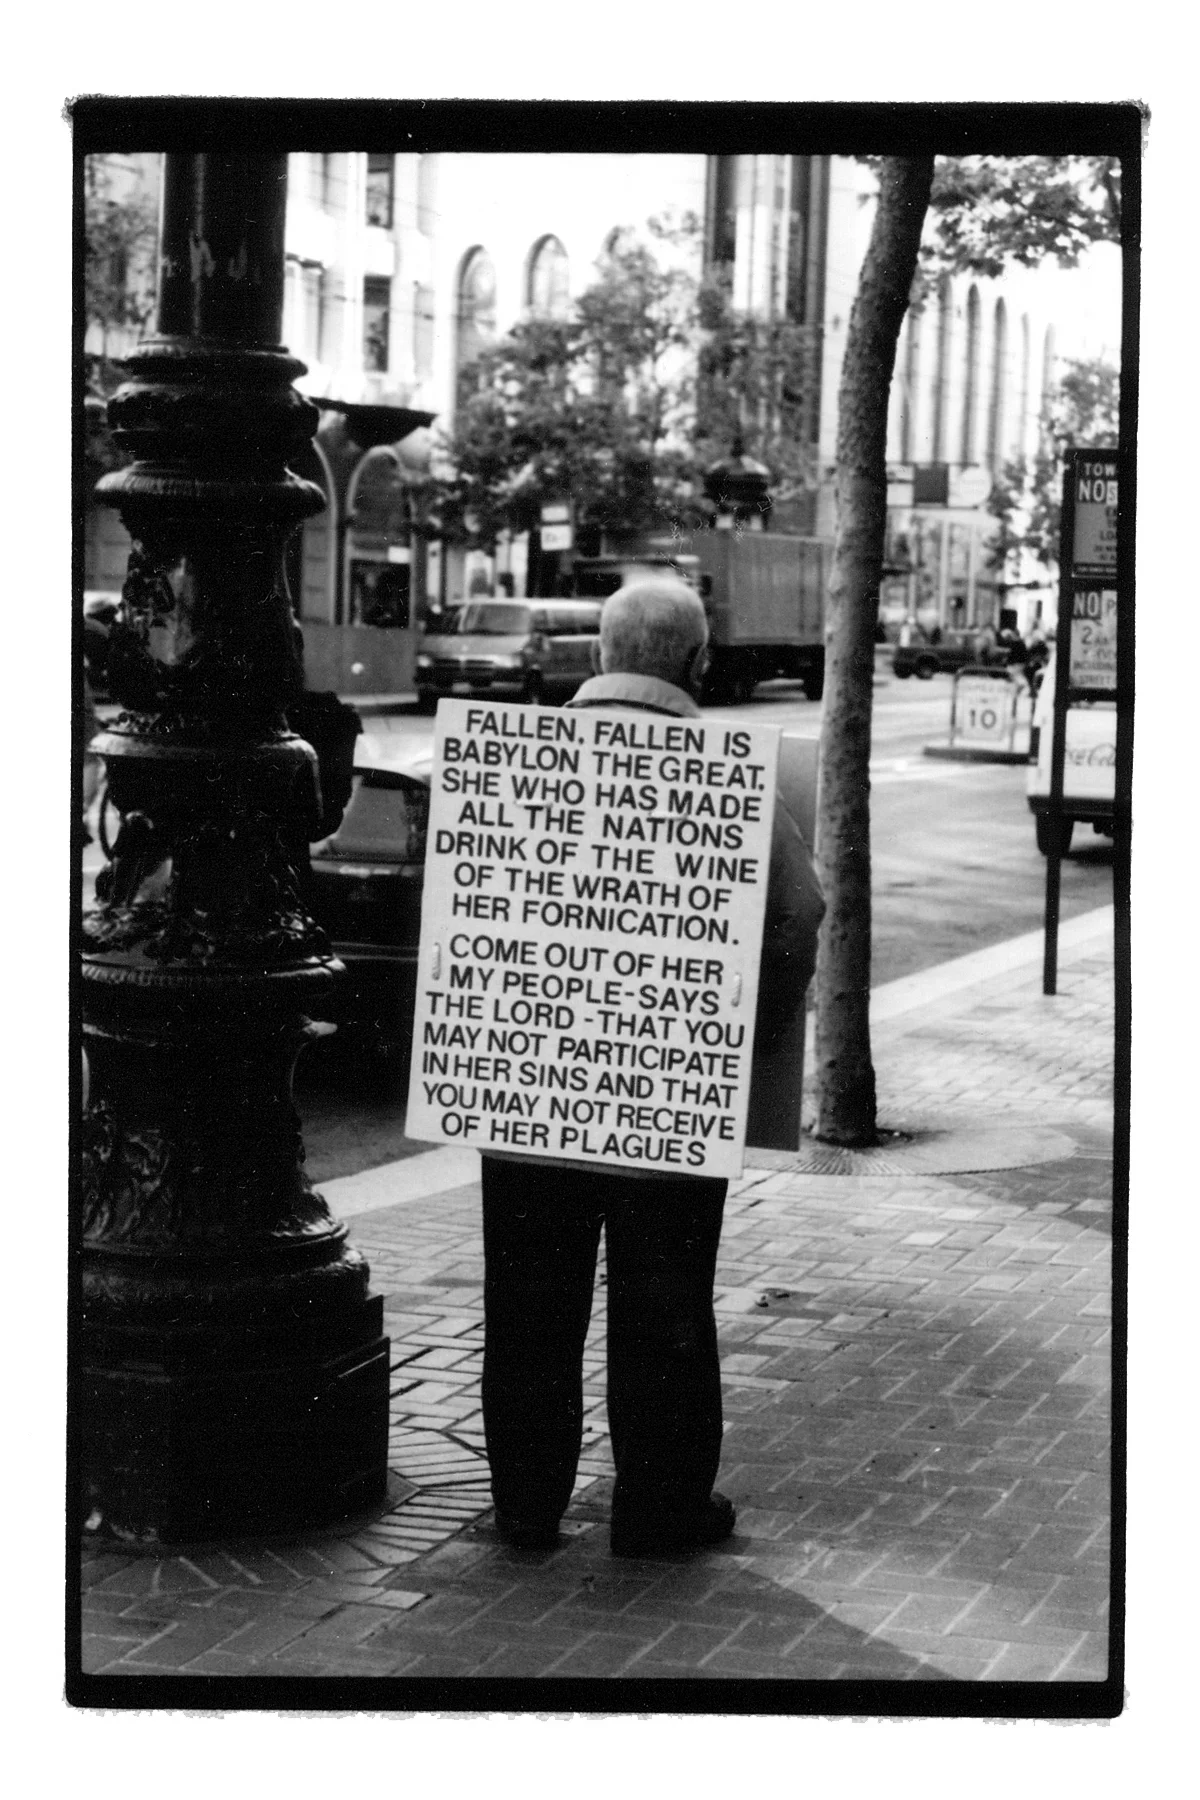 FALLEN. FALLEN IS
BABYLON THE GREAT.
SHE WHO HAS MADE
ALL THE NATIONS
DRINK OF THE WINE
OF THE WRATH OF
HER FORNICATION.
COME OUT OF HER
MY PEOPLE-SAYS
THE LORD -THAT YOU
MAY NOT PARTICIPATE
IN HER SINS AND THAT
YOU MAY NOT RECEIVE
OF HER PLAGUES
TOW
NO
NO
2
10